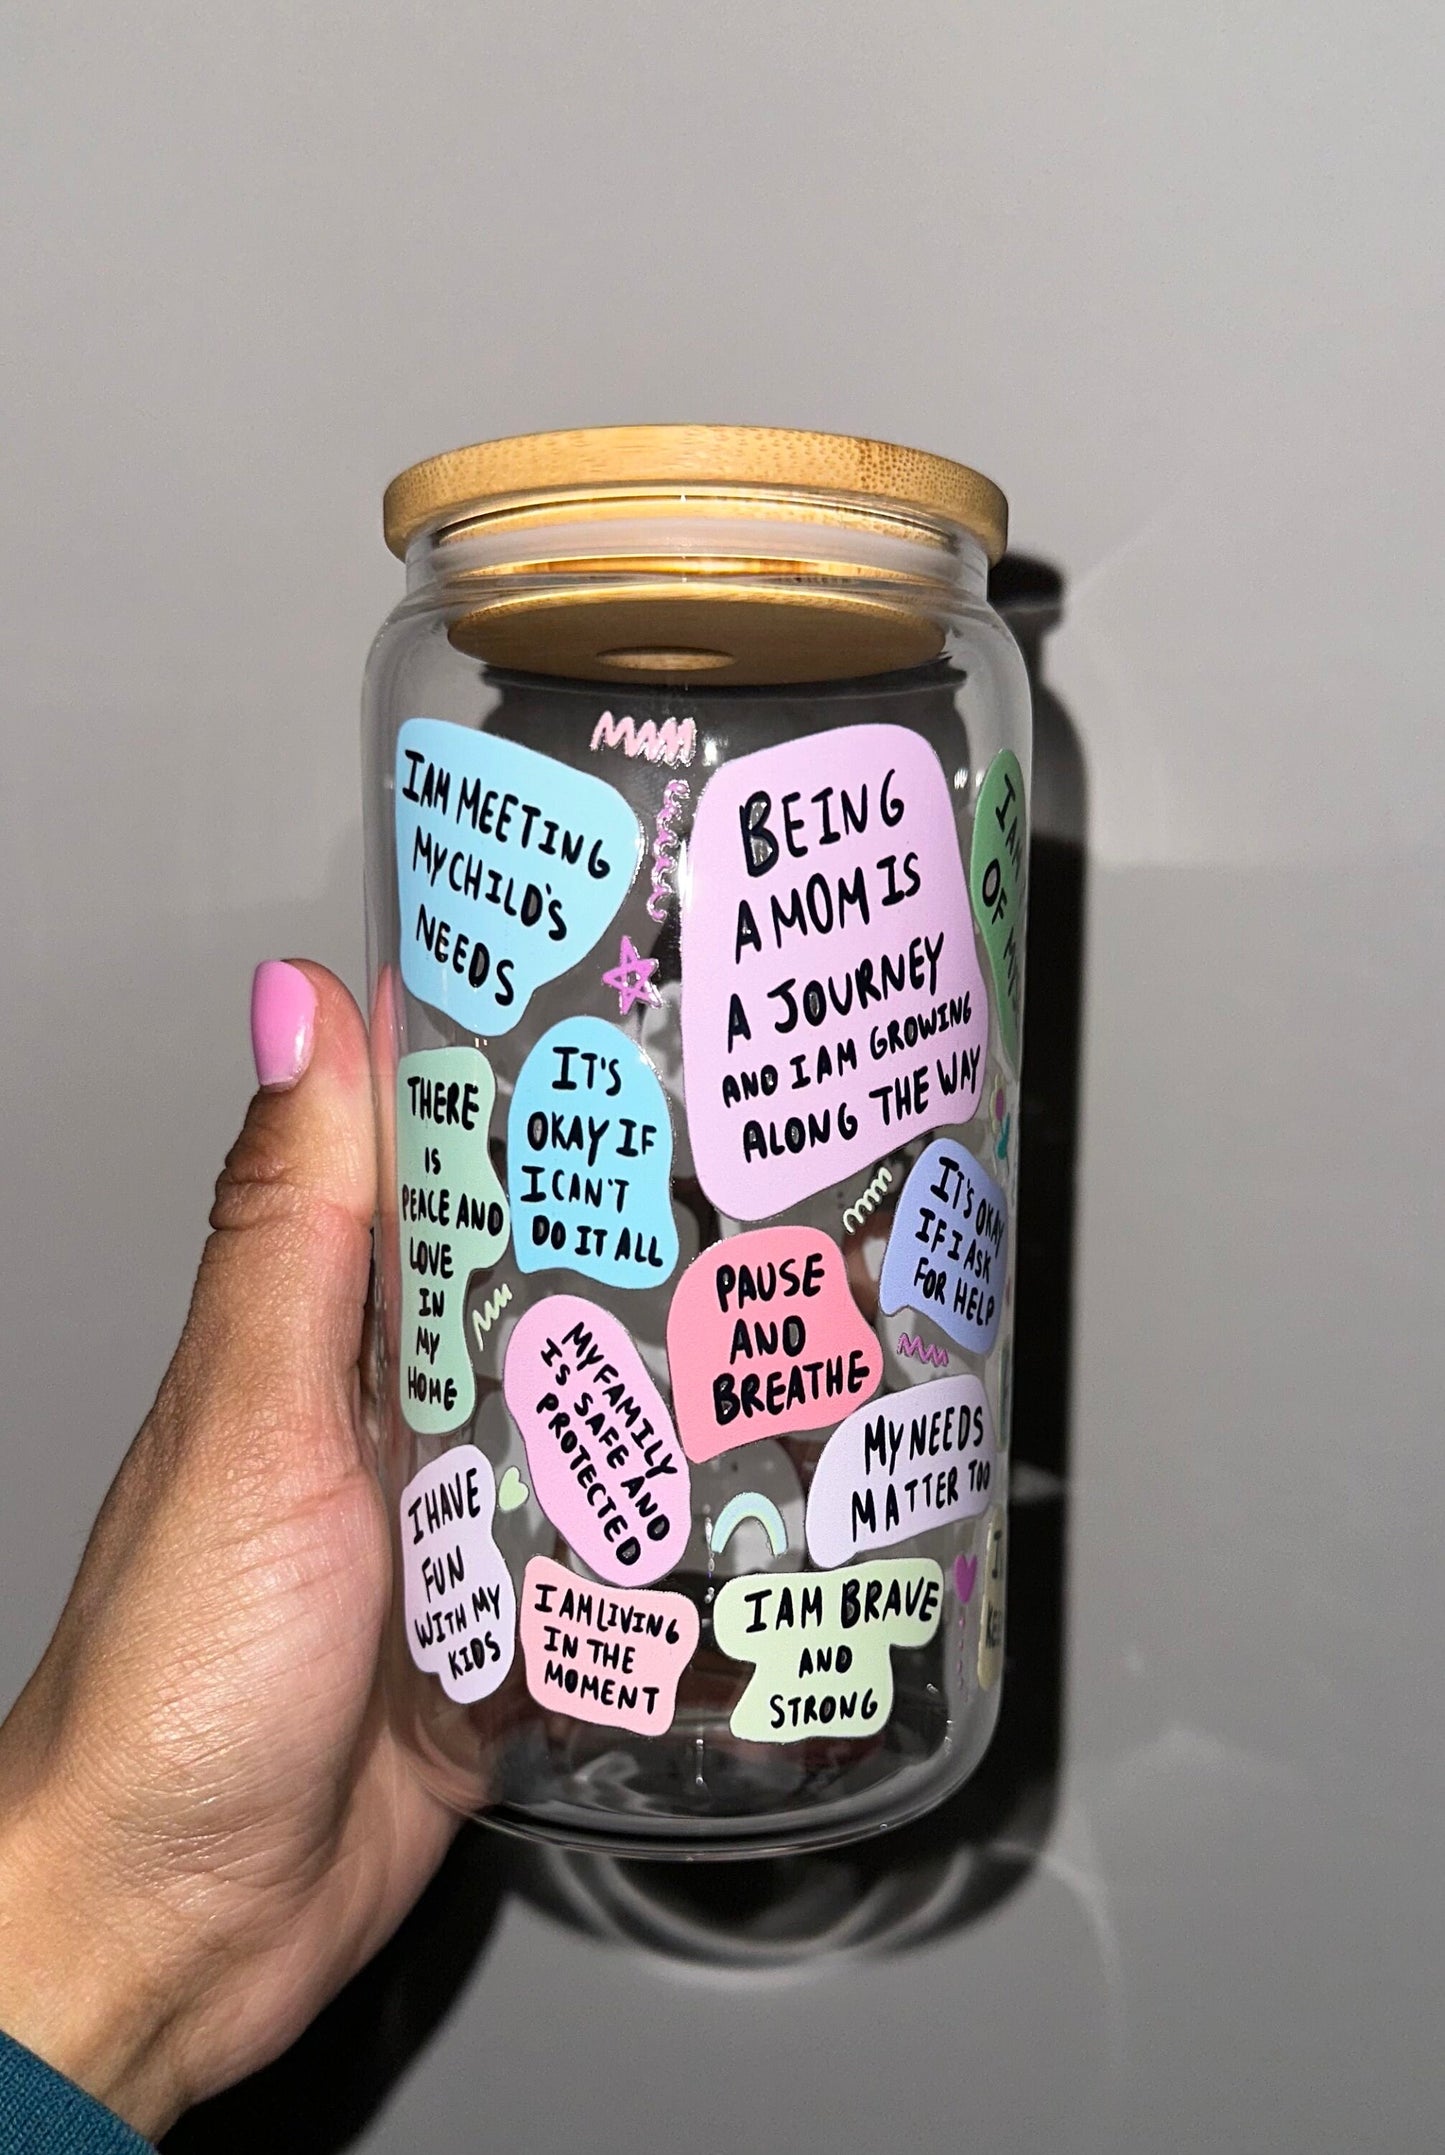 I AM MEETING
MY CHILD'S
NEEDS
BEING
A MOM IS
A JOURNEY
AND I AM GROWING
ALONG THE WAY
I AM
OF
THERE
IS
PEACE AND
LOVE
IN
MY
HOME
IT'S
OKAY IF
I CAN'T
DO IT ALL
IT'S OKAY
IF I ASK
FOR HELP
PAUSE
AND
BREATHE
MY FAMILY
IS SAFE AND
PROTECTED
MY NEEDS
MATTER TOO
I HAVE
FUN
WITH MY
KIDS
I AM LIVING
IN THE
MOMENT
I AM BRAVE
AND
STRONG